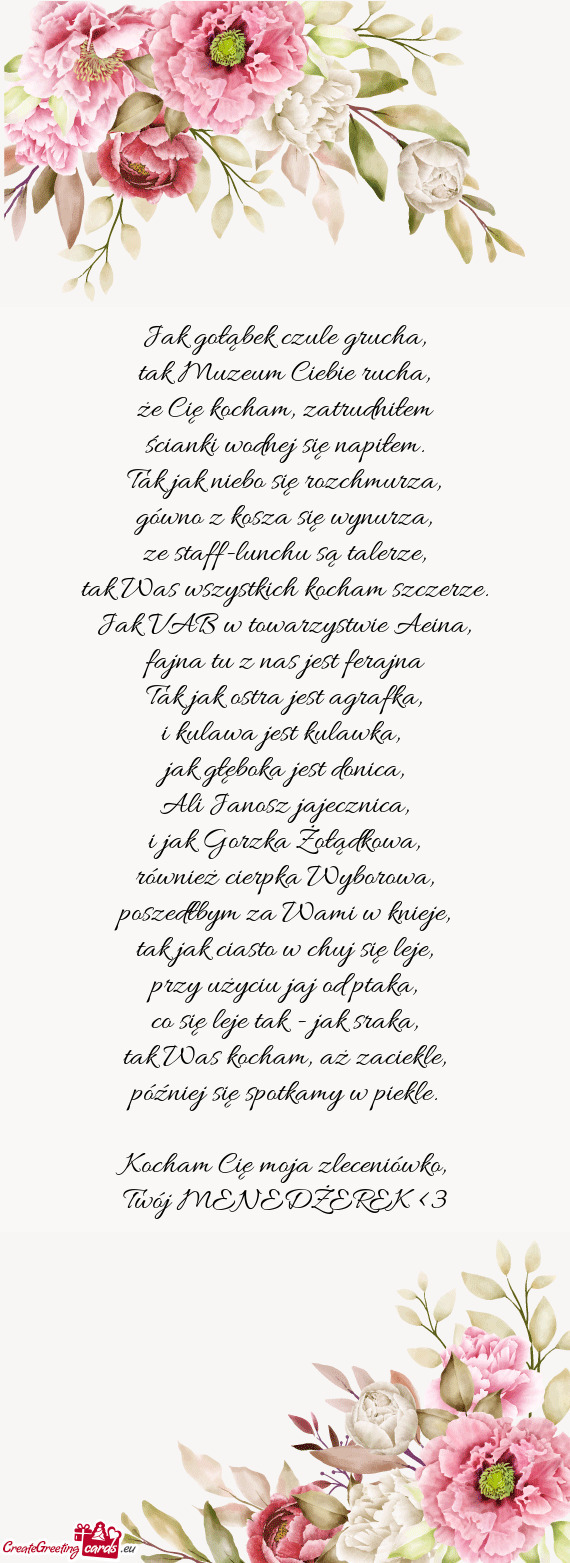 Jak gołąbek czule grucha,
tak Muzeum Ciebie rucha,
że Cię kocham, zatrudniłem
ścianki wodnej się napiłem.
Tak jak niebo się rozchmurza,
gówno z kosza się wynurza,
ze staff-lunchu są talerze,
tak Was wszystkich kocham szczerze.
Jak VAB w towarzystwie Aeina,
fajna tu z nas jest ferajna
Tak jak ostra jest agrafka,
i kulawa jest kulawka,
jak głęboka jest donica,
Ali Janosz jajecznica,
i jak Gorzka Żołądkowa,
również cierpka Wyborowa,
poszedłbym za Wami w knieje,
tak jak ciasto w chuj się leje,
przy użyciu jaj od ptaka,
co się leje tak - jak sraka,
tak Was kocham, aż zaciekle,
później się spotkamy w piekle.
Kocham Cię moja zleceniówko,
Twój MENEDŻEREK <3
CreateGreeting cards .eu